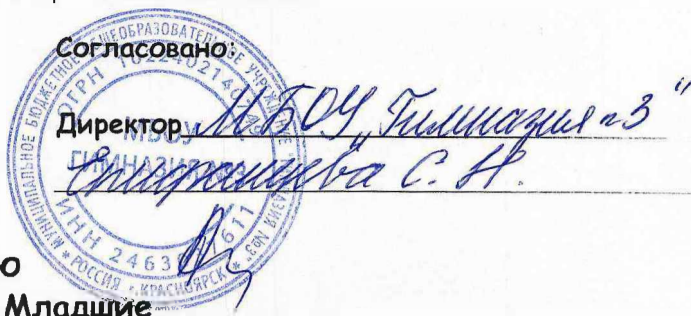 Согласовано:
Директор МБОУ „Гимназия №3"
С. Н.
МУНИЦИПАЛЬНОЕ БЮДЖЕТНОЕ ОБЩЕОБРАЗОВАТЕЛЬНОЕ УЧРЕЖДЕНИЕ
ГИМНАЗИЯ №3
ОГРН
МБОУ
ГИМНАЗИЯ
ИНН
* РОССИЯ г. КРАСНОЯРСК *
о
Младшие